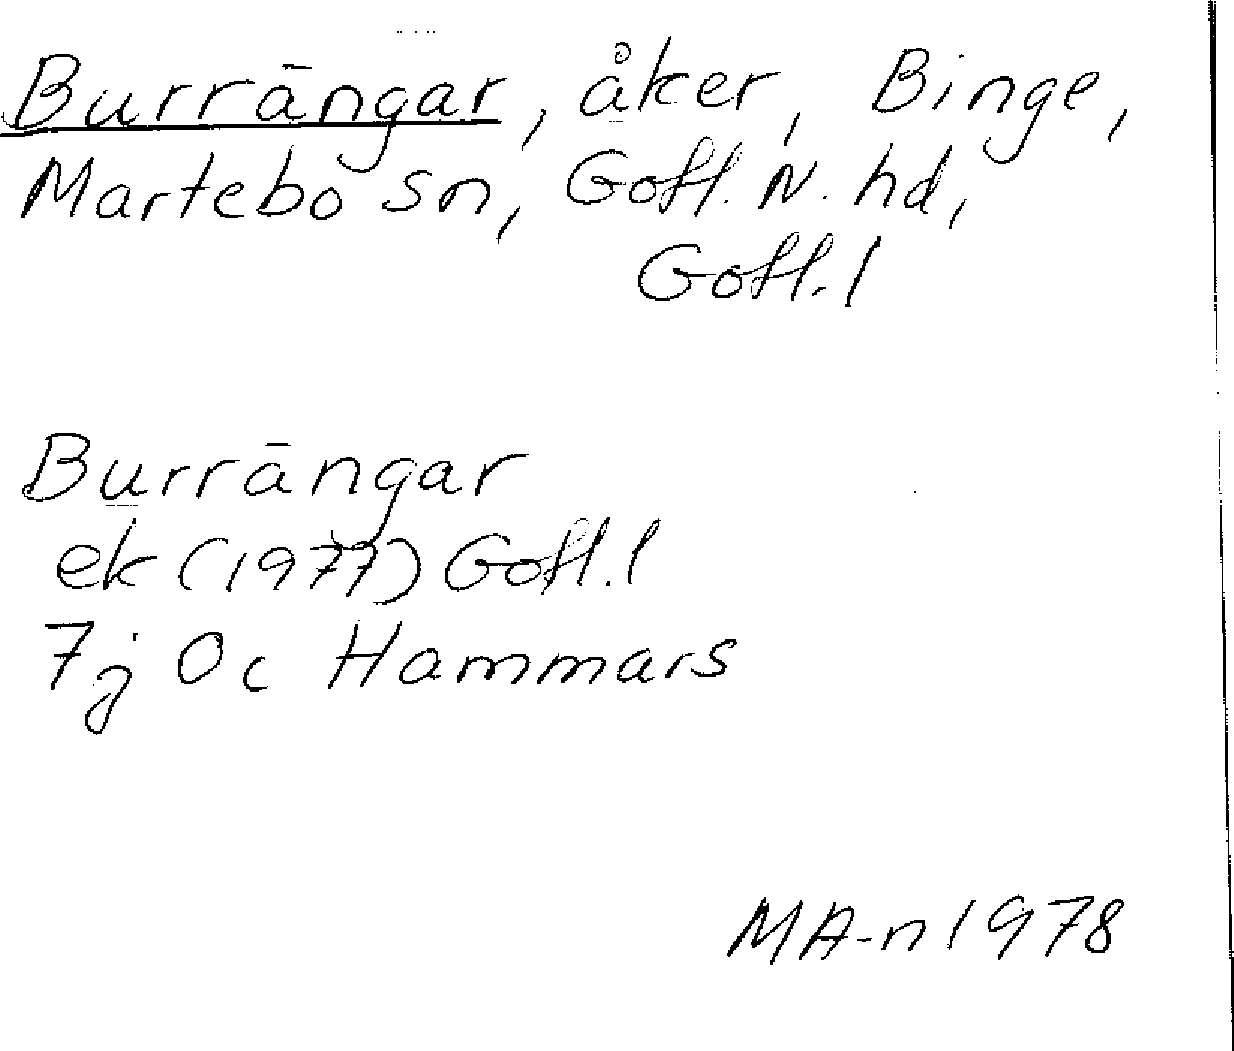 Burrängar, åker, Binge,
Martebo sn, Gotl. N. hd,
Gotl. l
Burrängar
ek (1977) Gotl. l
7j 0c Hammars
MA-n 1978